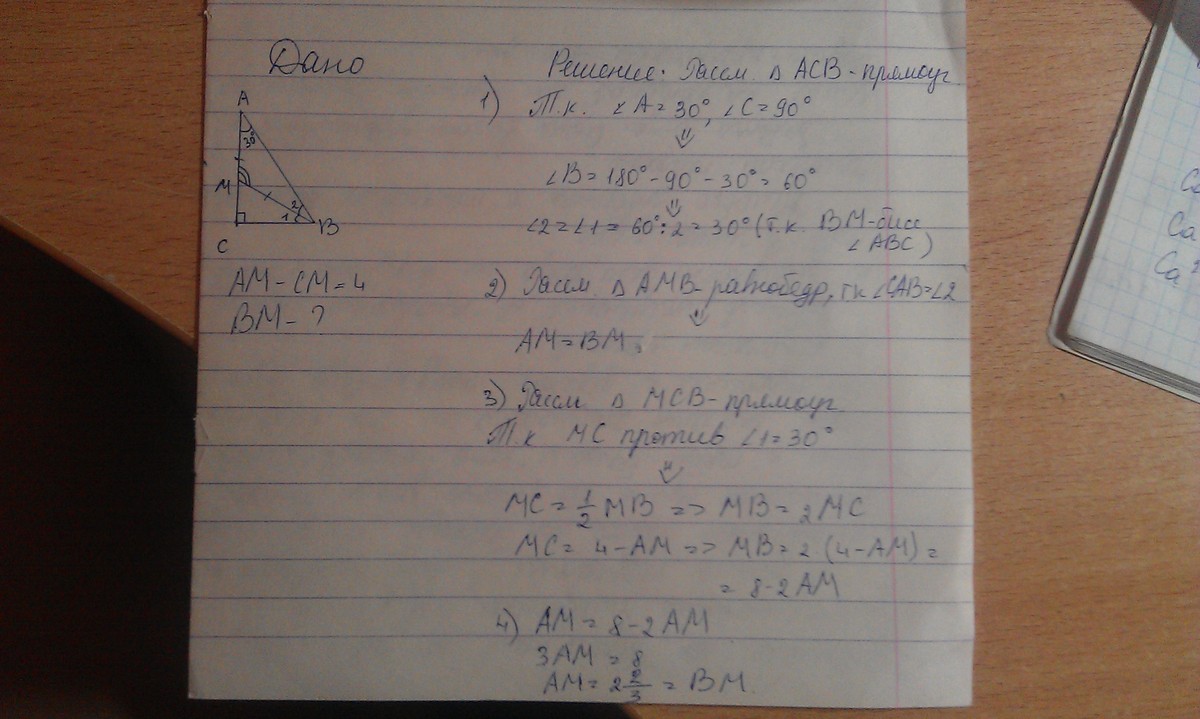 Дано
A
30°
M
2
1
B
C
AM - CM = 4
BM - ?
Решение: Рассм. △ ACB - прямоуг
1) Т.к. ∠A = 30°, ∠C = 90°
⇓
∠B = 180° - 90° - 30° = 60°
⇓
∠2 = ∠1 = 60° : 2 = 30° (т.к. BM - бисс
∠ABC)
2) Рассм. △ AMB - равнобедр, тк ∠CAB = ∠2
⇓
AM = BM,
3) Рассм △ MCB - прямоуг
Т.к MC против ∠1 = 30°
⇓
MC = 1/2 MB => MB = 2MC
MC = 4 - AM => MB = 2 (4 - AM) =
= 8 - 2AM
4) AM = 8 - 2AM
3AM = 8
AM = 2 2/3 = BM.